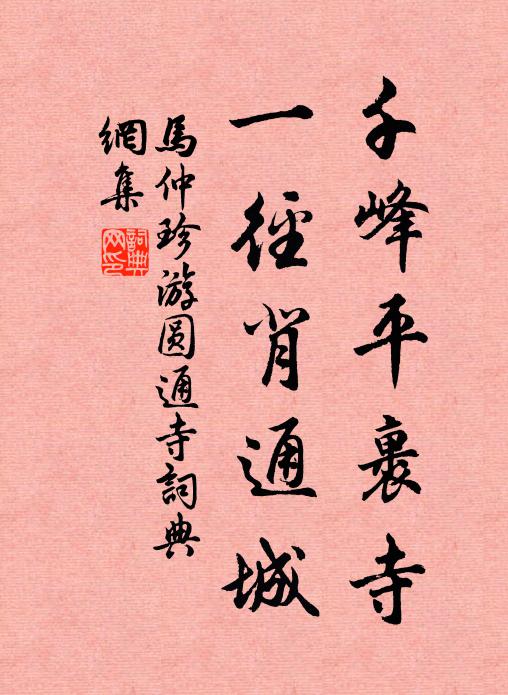 千峰平裹寺
一徑背通城
馬仲珍游圆通寺詞典
網集
詞典網印